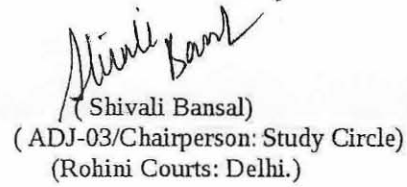 Shivali Bansal
( Shivali Bansal)
( ADJ-03/Chairperson: Study Circle)
(Rohini Courts: Delhi.)